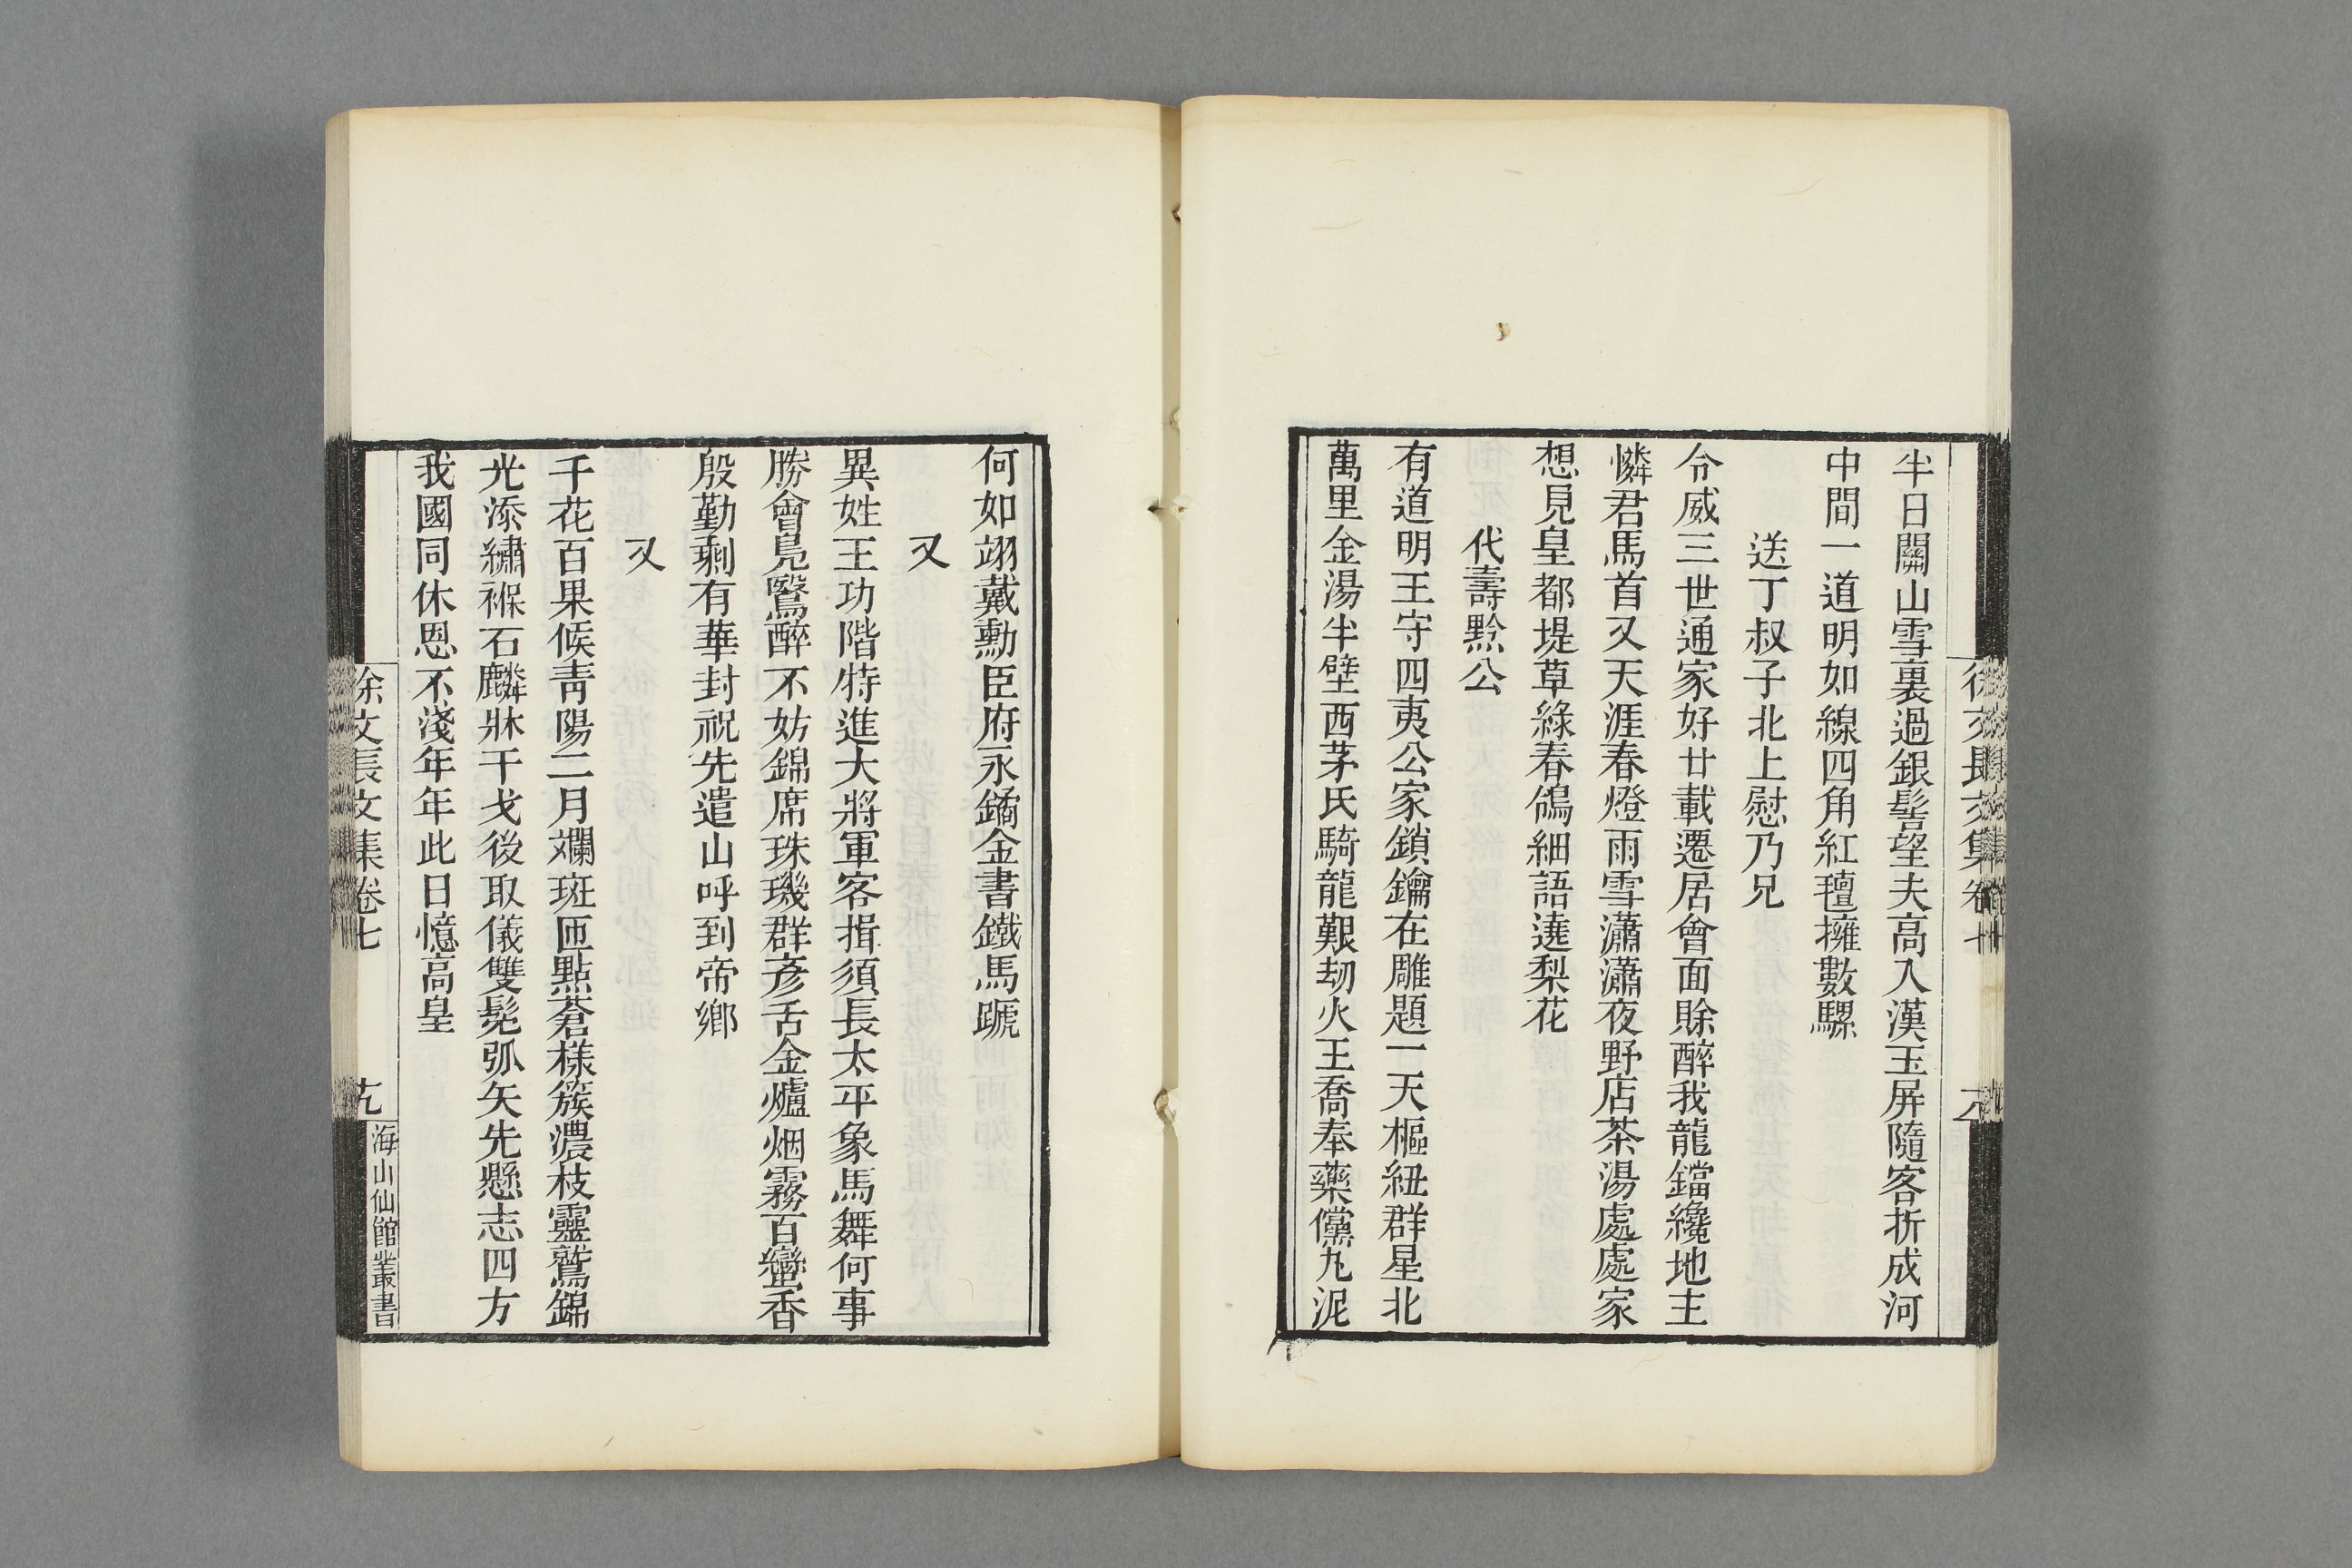 半日關山雪裏過銀髻望夫高入漢玉屏隨客折成河
中間一道明如線四角紅氊擁數騾
送丁叔子北上慰乃兄
令威三世通家好廿載遷居會面賖醉我龍鐺纔地主
憐君馬首又天涯春燈雨雪瀟瀟夜野店茶湯處處家
想見皇都堤草綠春鴿細語遶梨花
代壽黔公
有道明王守四夷公家鎖鑰在雕題一天樞紐群星北
萬里金湯半壁西茅氏騎龍艱劫火王喬奉藥儻丸泥
徐文長文集卷七
何如翊戴勳臣府永鐍金書鐵馬蹏
又
異姓王功階特進大將軍客揖須長太平象馬舞何事
勝會鳧鷖醉不妨錦席珠璣群彥舌金爐烟霧百蠻香
殷勤剩有華封祝先遣山呼到帝鄉
又
千花百果候靑陽二月斕斑匝點蒼樣簇濃枝靈鷲錦
光添繡褓石麟牀干戈後取儀雙髡弧矢先懸志四方
我國同休恩不淺年年此日憶高皇
徐文長文集卷七
海山仙館叢書